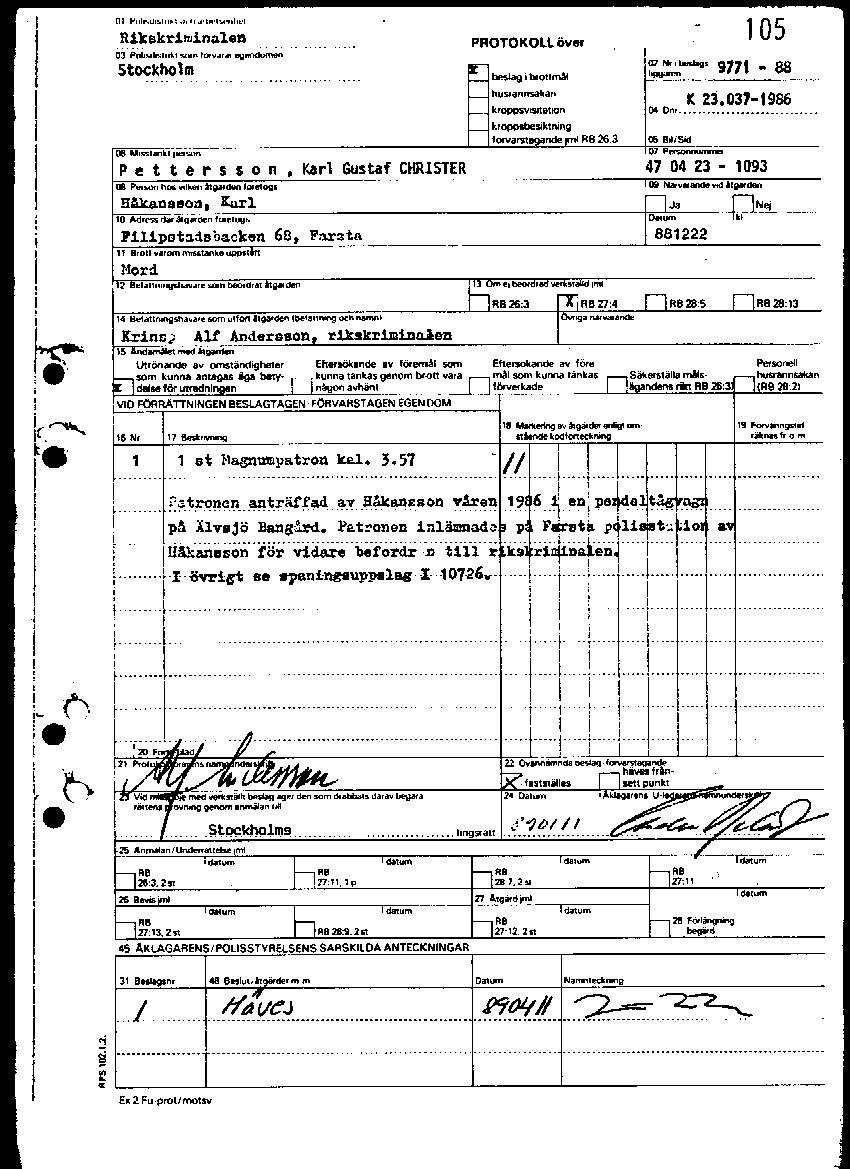 105
01 Polisdistrikt och arbetsenhet
Rikskriminalen
03 Polisdistrikt som förvarar egendomen
Stockholm
PROTOKOLL över
X beslag i brottmål
husrannsakan
kroppsvisitation
kroppsbesiktning
förvarstagande jml RB 26.3
02 Nr i beslags
liggaren 9771 - 88
K 23.037-1986
04 Dnr
05 Bil/Sid
06 Misstänkt person
Pettersson, Karl Gustaf CHRISTER
07 Personnummer
47 04 23 - 1093
08 Person hos vilken åtgärden företogs
Håkansson, Karl
09 Närvarande vid åtgärden
Ja Nej
10 Adress där åtgärden företogs
Filipstadsbacken 68, Farsta
Datum kl
881222
11 Brott varom misstanke uppstått
Mord
12 Befattningshavare som beordrat åtgärden
13 Om ej beordrad verkställd jml
RB 26:3 X RB 27:4 RB 28:5 RB 28:13
14 Befattningshavare som utfört åtgärden (befattning och namn)
Övriga närvarande
Krinsp Alf Andersson, rikskriminalen
15 Ändamålet med åtgärden
X Utrönande av omständigheter
som kunna antagas äga bety-
delse för utredningen
Eftersökande av föremål som
kunna tänkas genom brott vara
någon avhänt
Eftersökande av före
mål som kunna tänkas
förverkade
Säkerställa måls-
ägandens rätt RB 26:3)
Personell
husrannsakan
(RB 28:2)
VID FÖRRÄTTNINGEN BESLAGTAGEN-FÖRVARSTAGEN EGENDOM
16 Nr 17 Beskrivning
18 Markering av åtgärder enligt om-
stående kodförteckning
19 Förvaringstid
räknas fr o m
1 1 st Magnumpatron kal. 3.57 //
Patronen anträffad av Håkansson våren 1986 i en pendeltågvagn
på Älvsjö Bangård. Patronen inlämnades på Farsta polisstation av
Håkansson för vidare befordr n till rikskriminalen.
I övrigt se spaningsuppslag I 10726.
20 Forts blad
21 Protokollförarens namnunderskrift
22 Ovannämnda beslag-förvarstagande
X fastställes
häves från-
sett punkt
23 Vid missnöje med verkställt beslag äger den som drabbats därav begära
rättens prövning genom anmälan till
Stockholms tingsrätt
24 Datum Åklagarens U-ledarens namnunderskrift
890111
25 Anmälan/Underrättelse jml
datum datum datum datum
RB
26:3, 2 st
RB
27:11, 1 p
RB
28 7, 2 st
RB
27:11
26 Bevis jml
27 Åtgärd jml
datum datum datum datum
RB
27:13, 2 st
RB 28:9, 2 st
RB
27-12, 2 st
28 Förlängning
begärd
45 ÅKLAGARENS/POLISSTYRELSENS SÄRSKILDA ANTECKNINGAR
31 Beslagsnr 48 Beslut/åtgärder m m Datum Namnteckning
1 Häves 890411
RPS 102.1.2.
Ex 2 Fu-prot/motsv